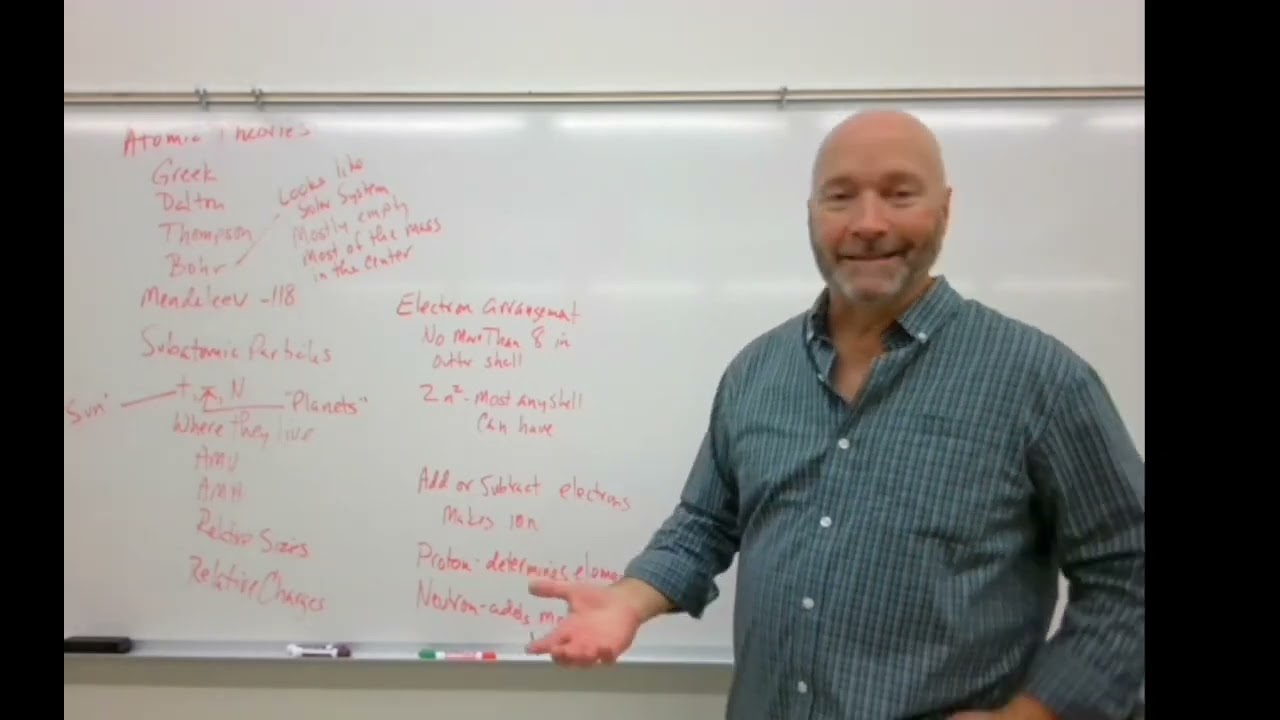 Atomic Theories
Greek
Dalton
Thompson
Bohr
Looks like
Solar System
Mostly empty
Most of the mass
in the center
Mendeleev - 118
Subatomic Particles
+, N
Sun"
"Planets"
Where they live
AMU
Relative Sizes
Relative Charges
Electron arrangemat
No More Than 8 in
outter shell
2n² - Most any shell
Can have
Add or Subtract electrons
Makes ion
Proton - determines
Neutron - adds